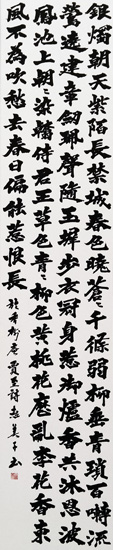 銀燭朝天紫陌長禁城春色曉蒼々千條弱柳垂青瑣百囀流
鶯遶建章劍珮聲隨玉墀步衣冠身惹御爐香共沐恩波
鳳池上朝々染翰侍君王草色青々柳色黃桃花歷亂李花香東
風不為吹愁去春日偏能惹恨長 賈至詩